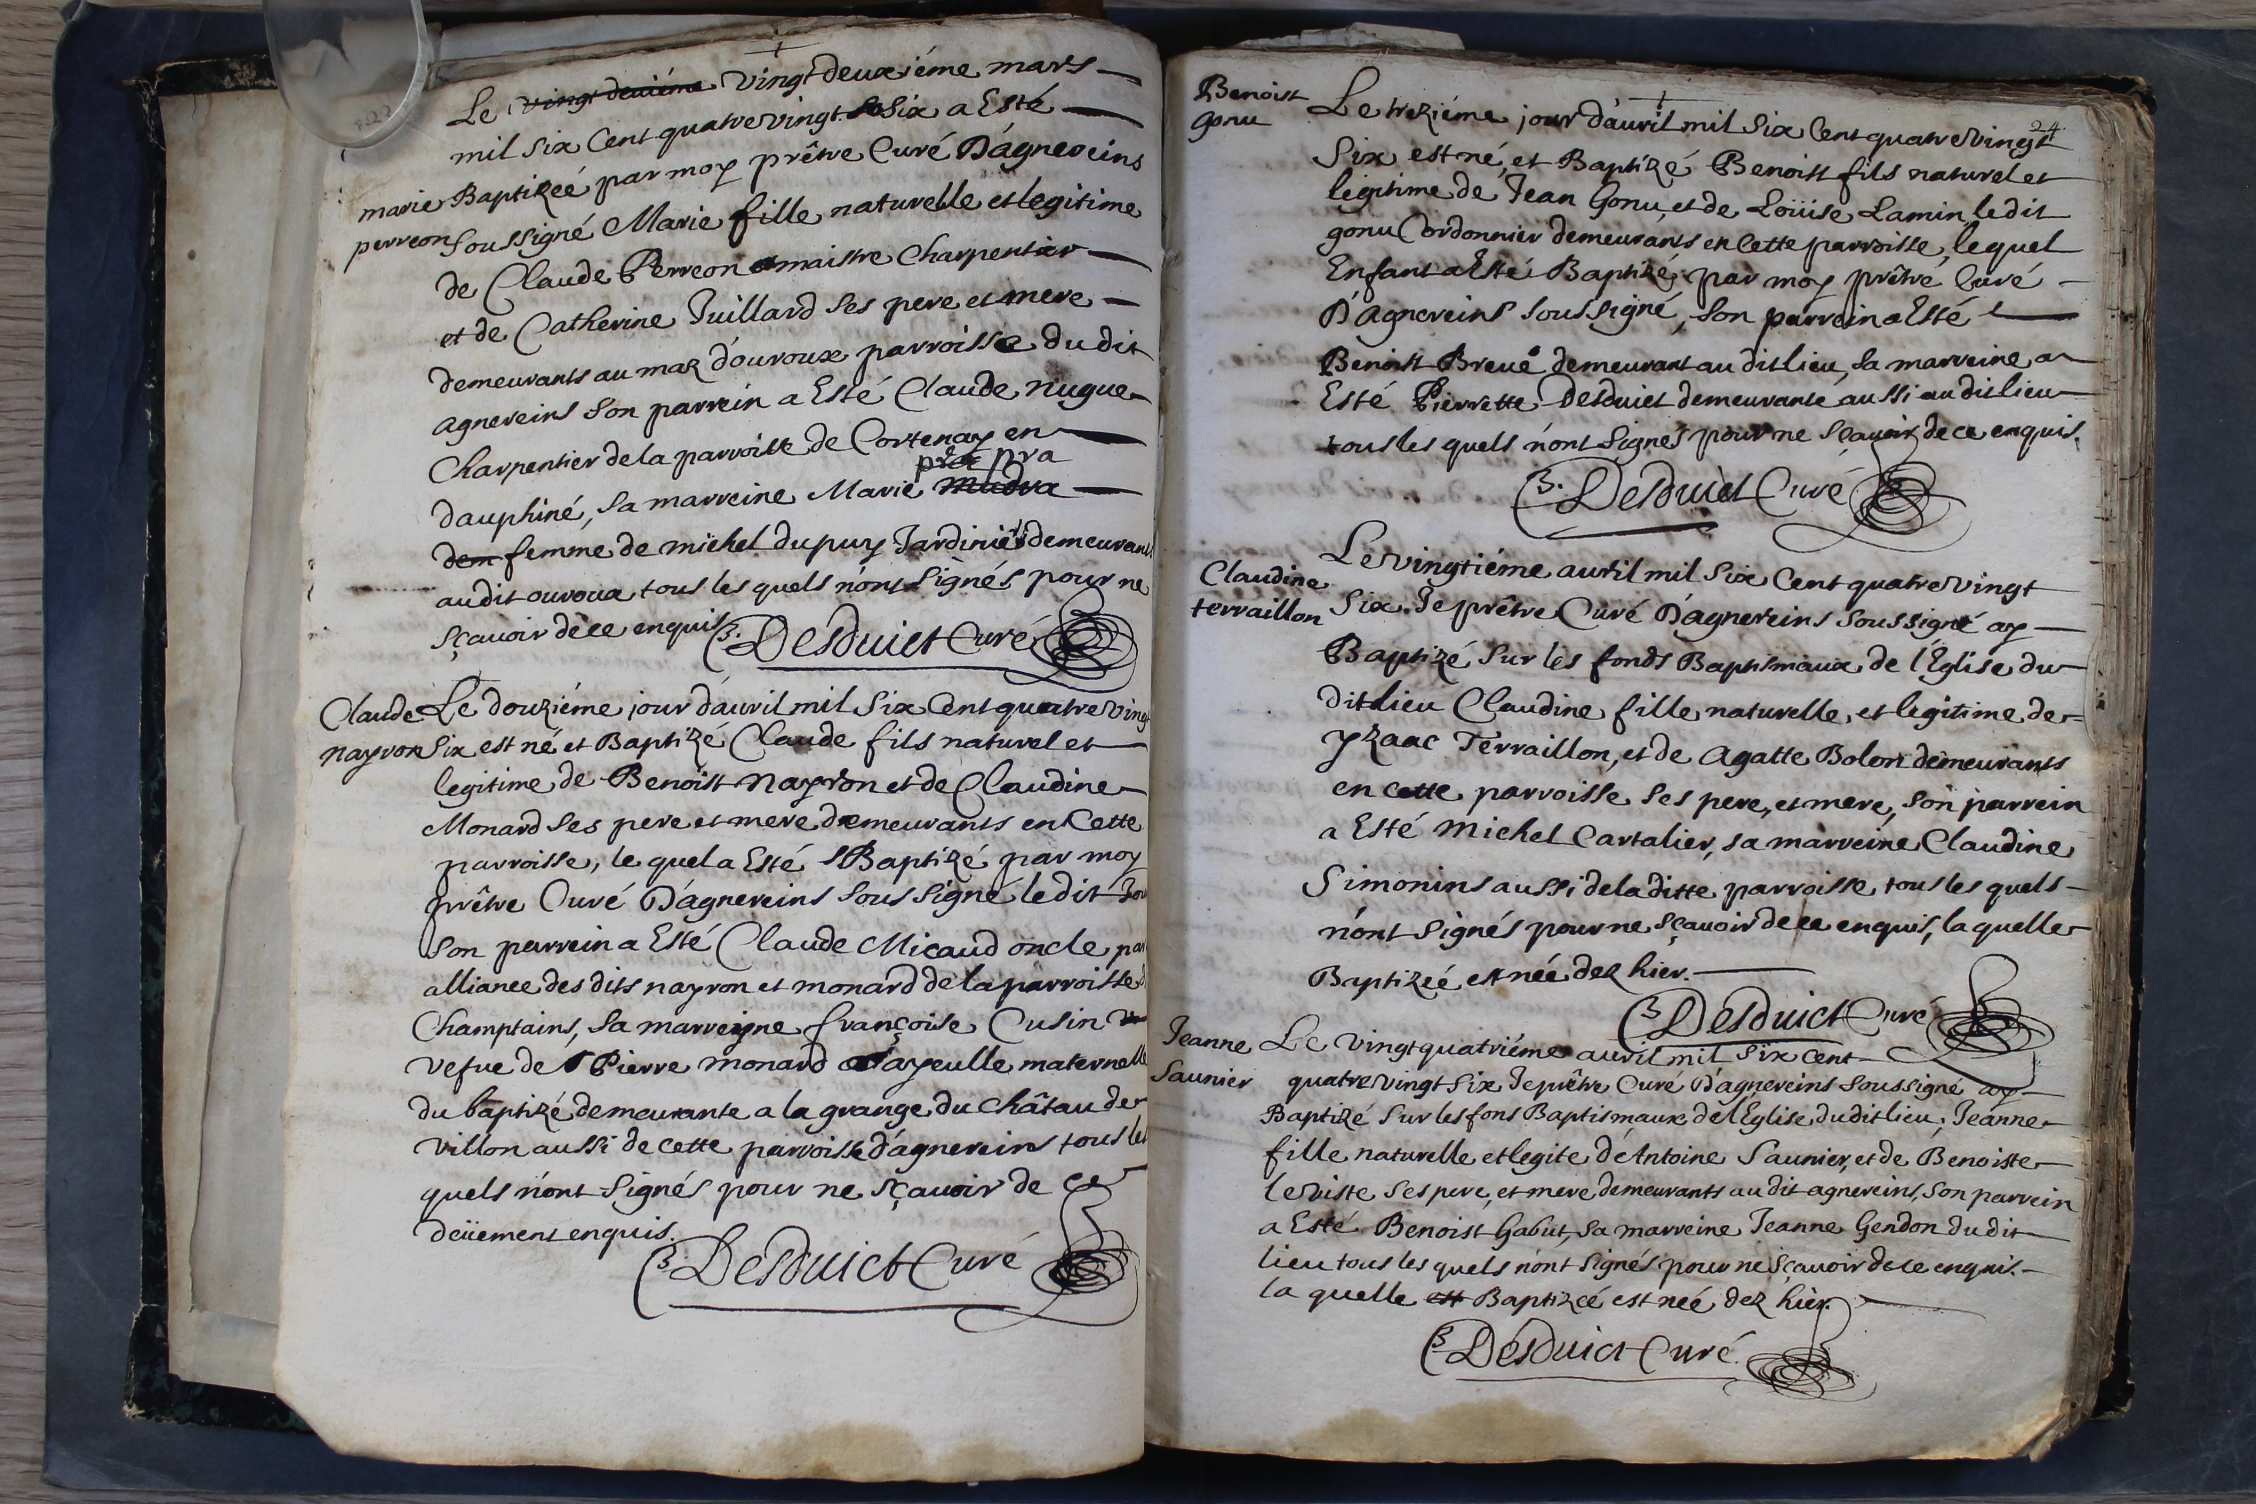 Le vingt deuiéme vingt deuxiéme mars
mil six Cent quatre vingt six a Esté
Baptizeé par moy prêtre Curé D'agnereins
marie
perreon
soussigné Marie fille naturelle et legitime
de Claude Perreon maistre Charpentier
et de Catherine Juillard ses pere et mere
demeurants au maz d'ouroux parroisse du dit
agnereins son parrein a Esté Claude nugue
Charpentier de la parroisse de Cortenay en
dauphiné, sa marreine Marie pra
dem femme de michel dupuy Jardinier demeurants
audit ouroux tous les quels n'ont signés pour ne
sçavoir de ce enquis. B. Desduict Curé
Claude
nayron
Le douziéme jour d'auril mil six Cent quatre vingt
six est né et Baptizé Claude fils naturel et
legitime de Benoist nayron et de Claudine
Monard ses pere et mere demeurants en Cette
parroisse, le quel a Esté Baptizé par moy
prêtre Curé D'agnereins soussigné le dit Jou
son parrein a Esté Claude Micaud oncle par
alliance des dits nayron et monard de la parroisse
Champtains, sa marreine françoise Cusin
vefue de Pierre monard ayeulle maternelle
du baptizé demeurante a la grange du châtau de
villon aussi de cette parroisse d'agnereins tous les
quels n'ont signés pour ne sçavoir de ce
deüement enquis.
B. Desduict Curé
24
Benoist
gonu
Le treziéme jour d'auril mil six Cent quatre vingt
six est né, et Baptizé Benoist fils naturel et
legitime de Jean Gonu, et de Loüise Lamin, le dit
gonu Cordonnier demeurants en Cette parroisse, le quel
Enfant a Esté Baptizé par moy prêtre Curé
D'agnereins soussigné, son parrein a Esté
Benoist Breue demeurant au dit lieu, sa marreine a
Esté Pierrette Desduict demeurante aussi au dit lieu
tous les quels n'ont signés pour ne sçavoir de ce enquis.
B. Desduict Curé
Claudine
terraillon
Le vingtiéme auril mil six Cent quatre vingt
six Je prêtre Curé D'agnereins soussigné ay
Baptizé sur les fonds Baptismaux de l'Eglise du
dit lieu Claudine fille naturelle, et legitime de
yzaac Terraillon, et de agatte Bolon demeurants
en cette parroisse ses pere, et mere, son parrein
a Esté michel Cartalier, sa marreine Claudine
Simonins aussi de la ditte parroisse tous les quels
n'ont signés pour ne sçavoir de ce enquis, la quelle
Baptizeé est née dez hier.
B. Desduict Curé
Jeanne
Saunier
Le vingt quatriéme auril mil six cent
quatre vingt six Je prêtre Curé D'agnereins soussigné ay
Baptizé sur les fons Baptismaux de l'Eglise du dit lieu, Jeanne
fille naturelle et legite d'Antoine Saunier, et de Benoiste
leviste ses pere, et mere demeurants au dit agnereins, son parrein
a Esté Benoist Gabut, sa marreine Jeanne Gendon du dit
lieu tous les quels n'ont signés pour ne sçavoir de ce enquis.
la quelle est Baptizeé est neé dez hier.
B. Desduict Curé.